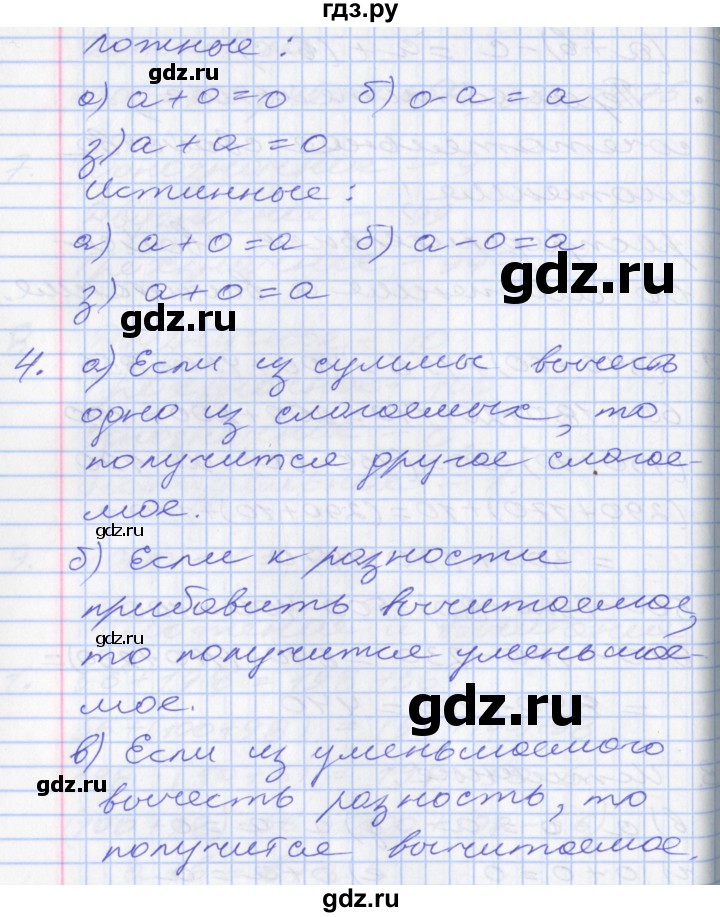 гдз.ру
ложные:
gdz.ru
а) а+о=о б) о-а=а
з) а+а=о
Истинные:
а) а+о=а б) а-о=а
gdz.ru
з) а+о=а
gdz.ru
4. а) Если из суммы вычесть
одно из слагаемых, то
получится другое слагае-
мое.
gdz.ru
б) Если к разности
прибавить вычитаемое,
gdz.ru
то получится уменьшае-
мое.
gdz.ru
в) Если из уменьшаемого
gdz.ru
вычесть разность, то
получится вычитаемое.
gdz.ru